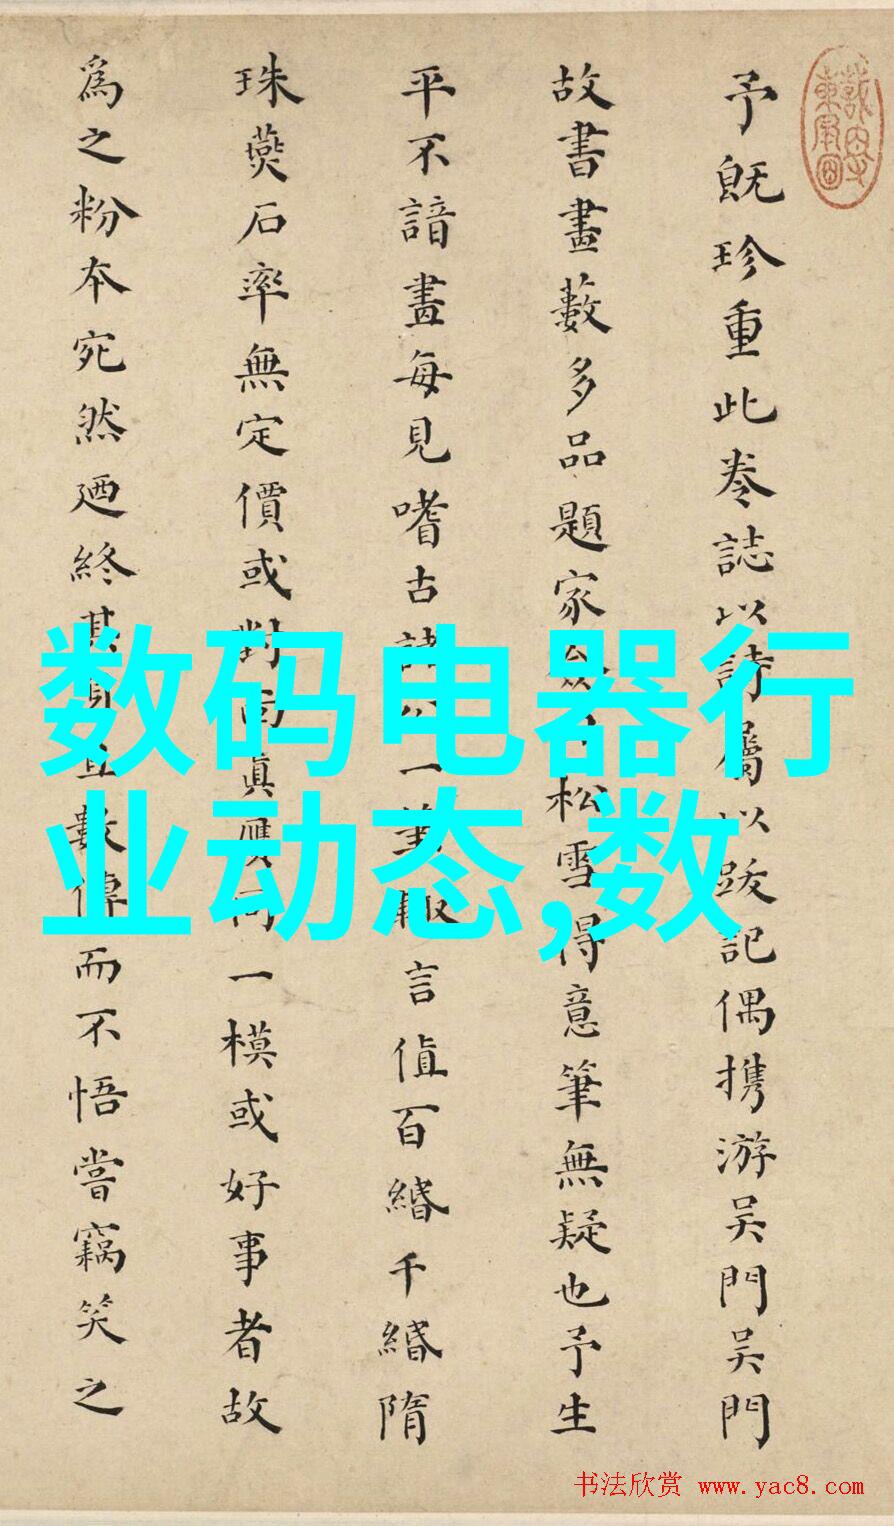 予既珍重此卷誌以詩屬以跋記偶携游吴門吴門
故書畫藪多品題家松雪得意筆無疑也予生
平不諳畫每見嗜古諸一筆輙言值百緡千緡隋
珠燕石率無定價或對面真贋同一模或好事者故
為之粉本宛然迺終其身數傳而不悟嘗竊笑之
数码电器行
业动态,数
书法欣赏 www.yac8.com